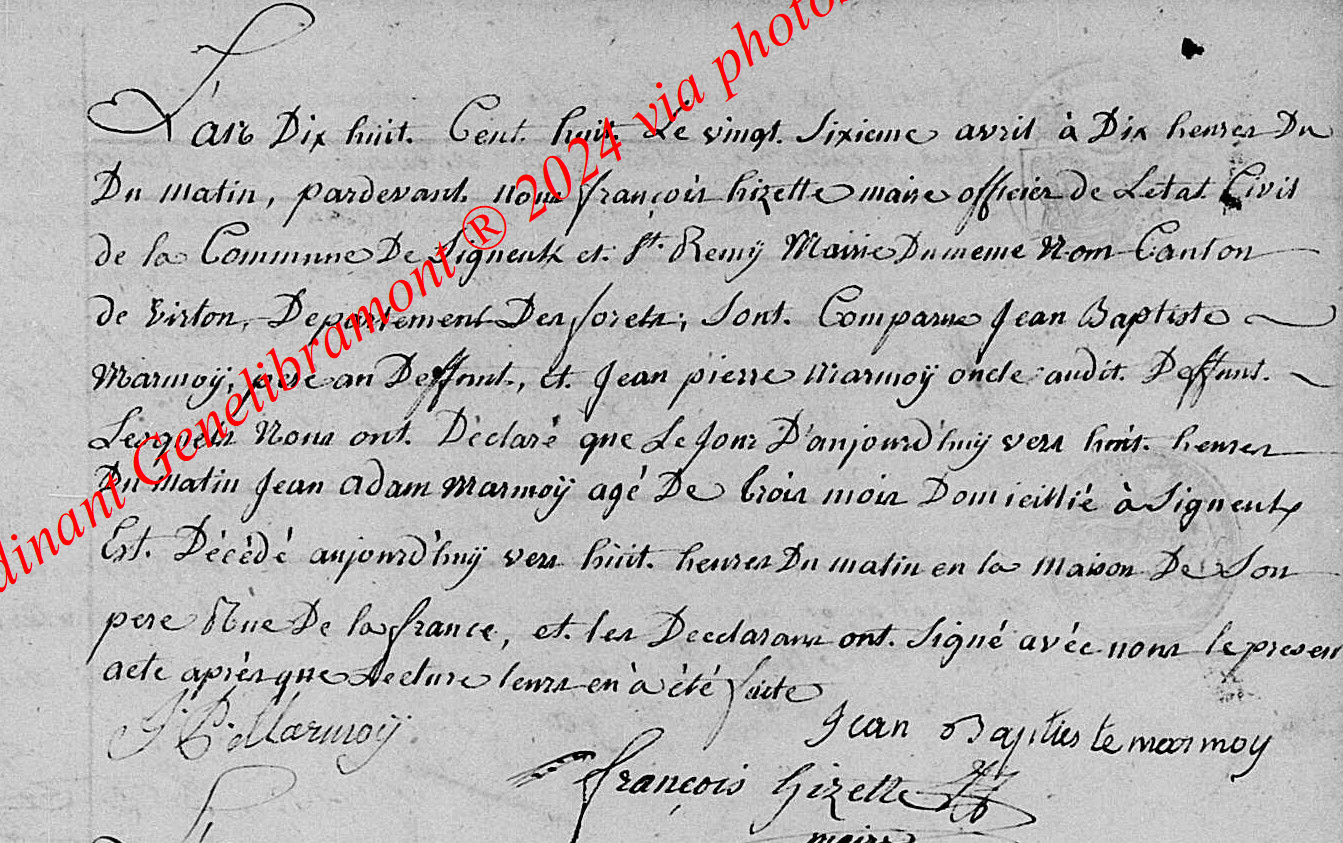 L'an Dix huit. Cent. huit. Le vingt. sixieme avril à Dix heures Du
Du matin, pardevant. nous françois hizette maire officier de Letat. Civil
de la Commune De Signeulx et. St. Remÿ Mairie Dumeme Nom Canton
de virton, Departement Des forets; sont. Comparus Jean Baptiste
Marmoÿ, pere au Deffunt., et. Jean pierre Marmoÿ oncle audit. Deffunt.
Lesquels Nous ont. Déclaré que Le Jour D'anjourd'huÿ vers huit. heures
Du matin Jean adam Marmoÿ agé De trois mois Domicillié à Signeulx
Est. Décédé anjourd'huÿ vers huit. heures Du matin en la maison De Son
pere Rüe De la france, et. les Decclarans ont. signé avéc nous le present
acte aprés que Lecture leurs en à été faite
J. P. Marmoÿ.
Jean Baptieste marmoy
françois hizette
maire
dinant Genelibramont ® 2024 via photos